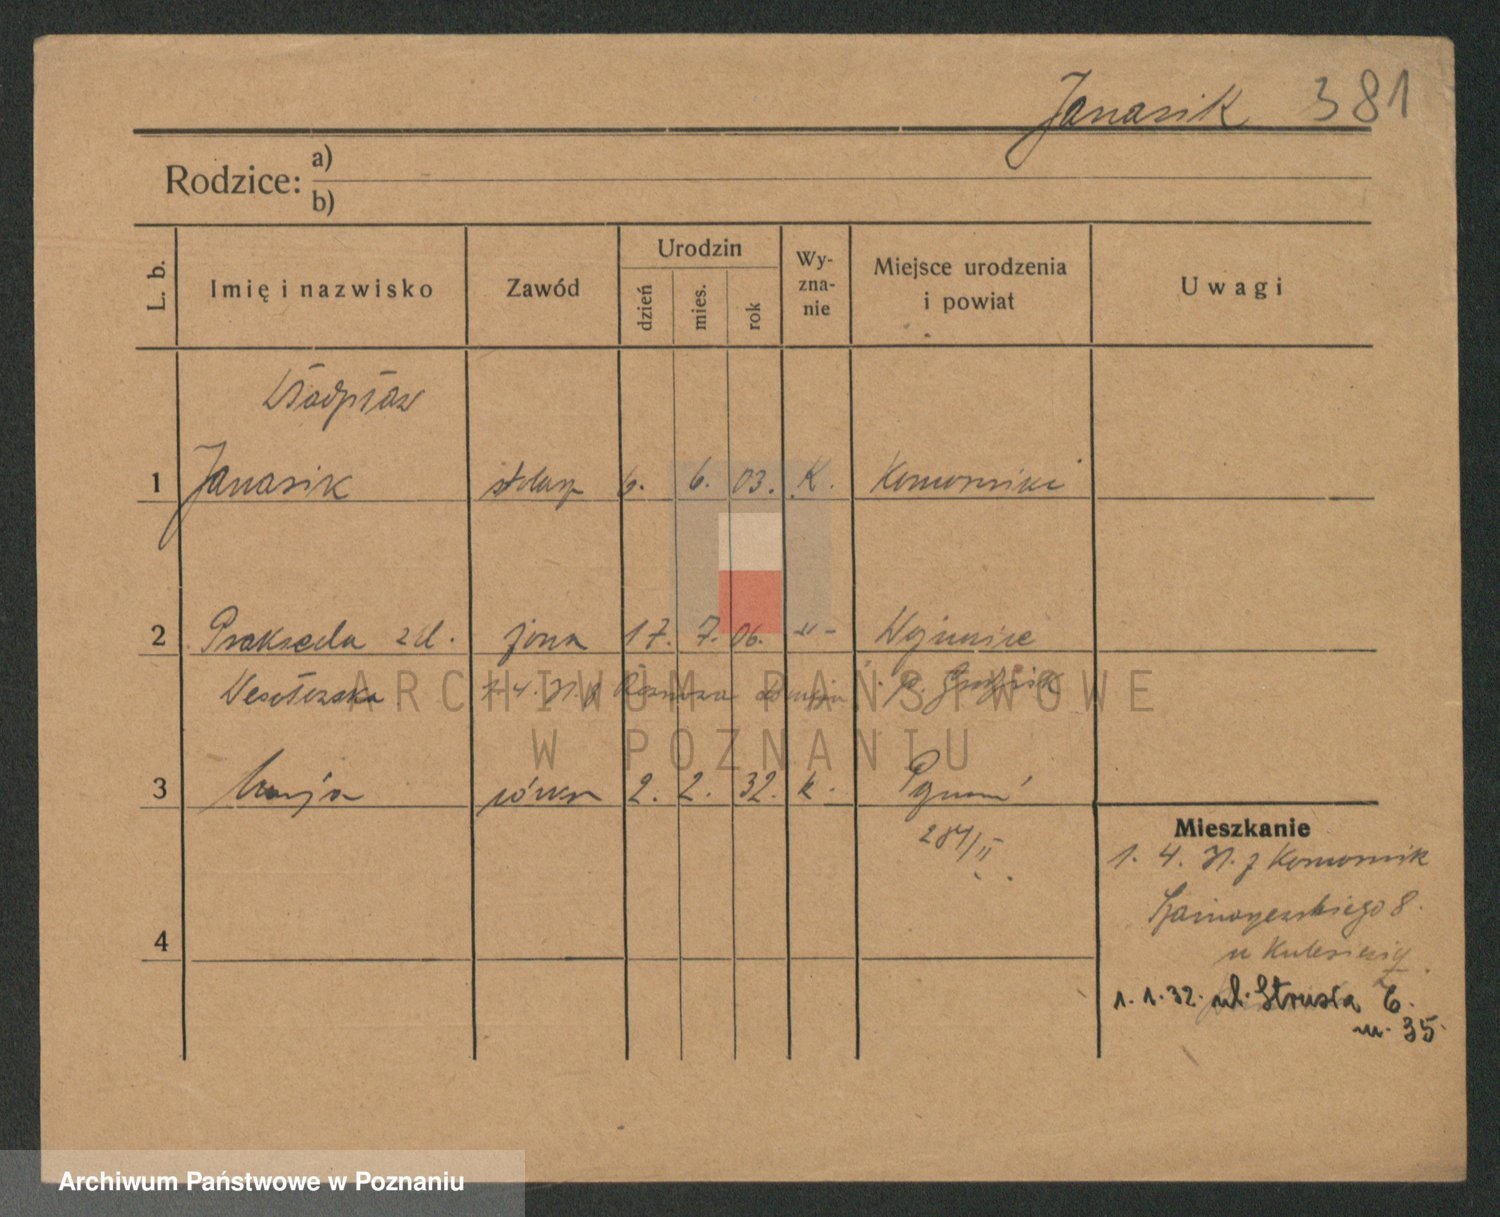 Janasik 381
Rodzice: a)
b)
L. b. Imię i nazwisko Zawód Urodzin dzień mies. rok Wy-zna-nie Miejsce urodzenia i powiat Uwagi
Władysław
1 Janasik stolarz 6. 6. 03. K. Komorniki
2 Prakseda zd. żona 17. 7. 06. -"- Wojnowice
1. 4. 31. z p. Grodzisk
3 Maryja córka 2. 2. 32. k. Poznań
284/II
Mieszkanie
1. 4. 31. z Komornik
8.
u
4
1. 1. 32. ul. Strusia 6.
m. 35.
ARCHIWUM PAŃSTWOWE
W POZNANIU
Archiwum Państwowe w Poznaniu